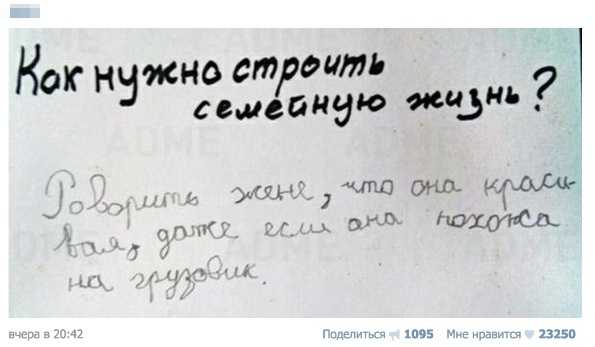 Как нужно строить
семейную жизнь?
Говорить жене, что она краси-
вая, даже если она похожа
на грузовик.
ADME
ADME
ADME
ADME
ADME
ADME
вчера в 20:42 Поделиться 1095 Мне нравится 23250